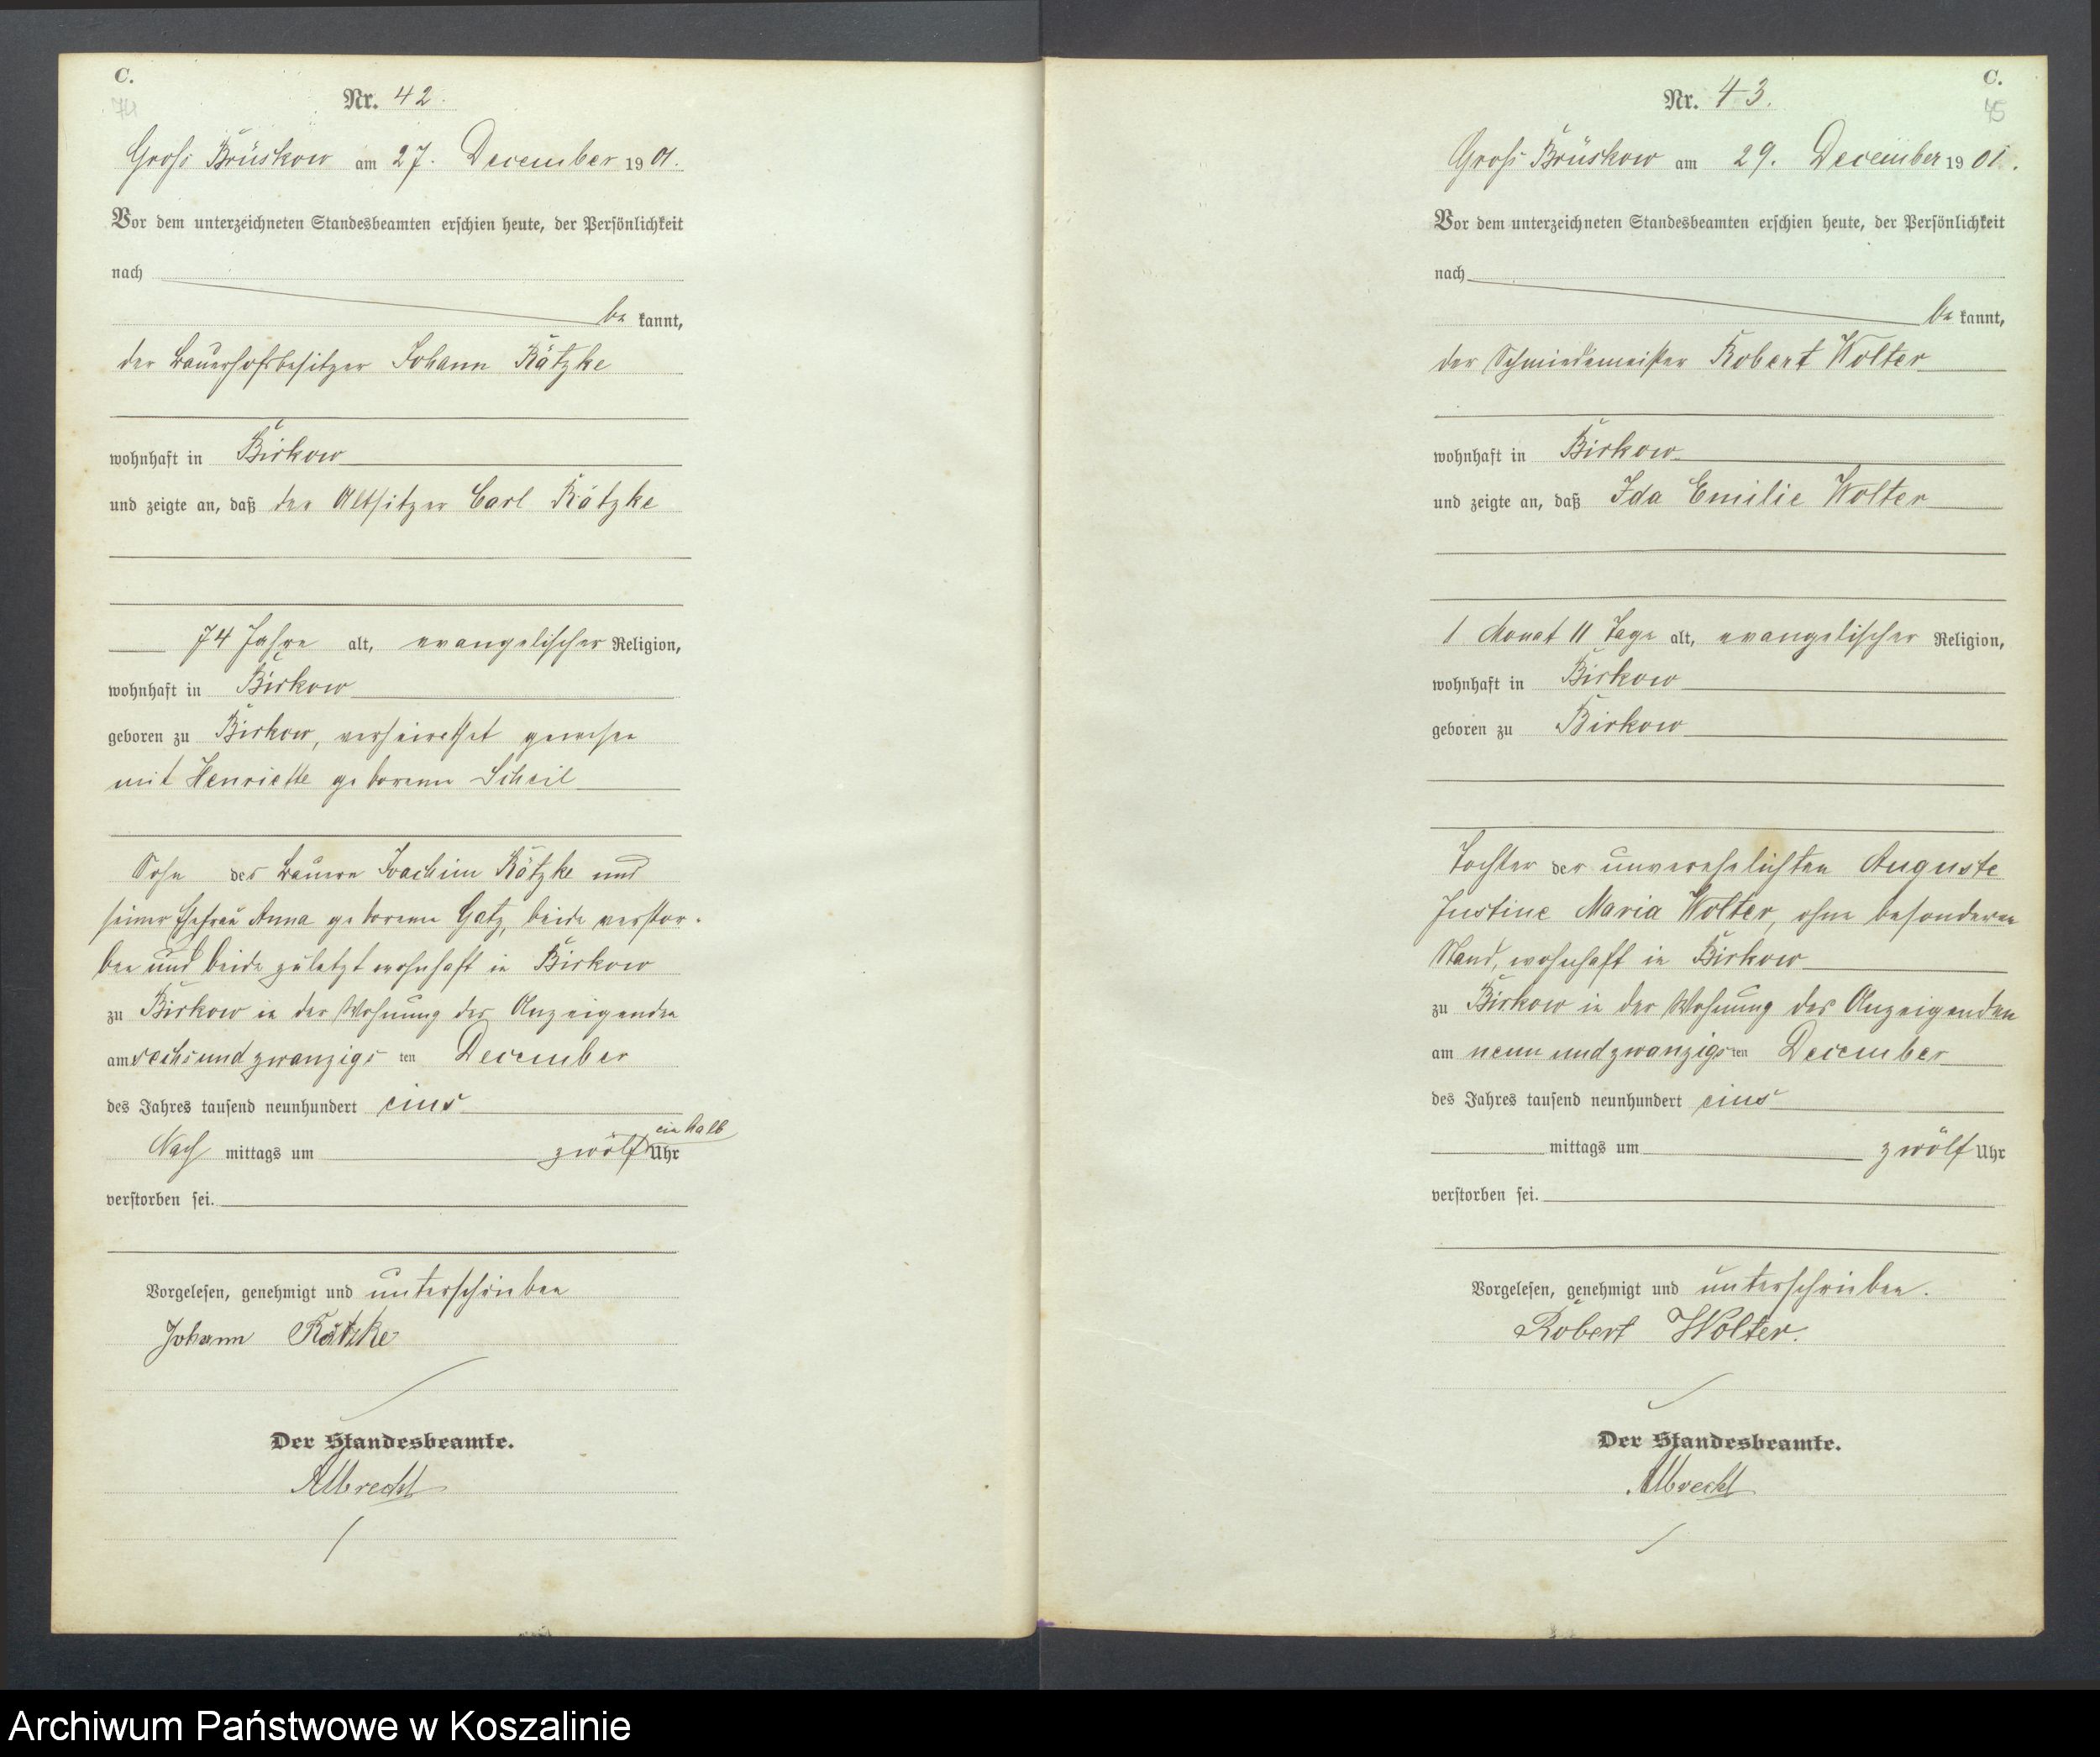 C.
74
Nr. 42.
Groß Brüskow am 27. December 1901.
Vor dem unterzeichneten Standesbeamten erschien heute, der Persönlichkeit
nach
be kannt,
der Bauerhofsbesitzer Johann Rätzke
wohnhaft in Birkow
und zeigte an, daß der Altsitzer Carl Rätzke
74 Jahre alt, evangelischer Religion,
wohnhaft in Birkow
geboren zu Birkow, verheirathet gewesen
mit Henriette geborenen Scheil
Sohn des Bauern Joachim Rätzke und
seiner Ehefrau Anna geborenen Gatz, beide verstor-
ben und beide zuletzt wohnhaft in Birkow
zu Birkow in der Wohnung des Anzeigenden
am sechsundzwanzigs ten December
des Jahres tausend neunhundert eins
ein halb
Nach mittags um zwölf Uhr
verstorben sei.
Vorgelesen, genehmigt und unterschrieben
Johann Rätzke
Der Standesbeamte.
Albrecht
C.
75
Nr. 43.
Groß Brüskow am 29. December 1901.
Vor dem unterzeichneten Standesbeamten erschien heute, der Persönlichkeit
nach
be kannt,
der Schmiedemeister Robert Wolter
wohnhaft in Birkow
und zeigte an, daß Ida Emilie Wolter
1 Monat 11 Tage alt, evangelischer Religion,
wohnhaft in Birkow
geboren zu Birkow
Tochter der unverehelichten Auguste
Justine Maria Wolter, ohne besonderen
Stand, wohnhaft in Birkow
zu Birkow in der Wohnung des Anzeigenden
am neunundzwanzigs ten December
des Jahres tausend neunhundert eins
mittags um zwölf Uhr
verstorben sei.
Vorgelesen, genehmigt und unterschrieben.
Robert Wolter.
Der Standesbeamte.
Albrecht
Archiwum Państwowe w Koszalinie